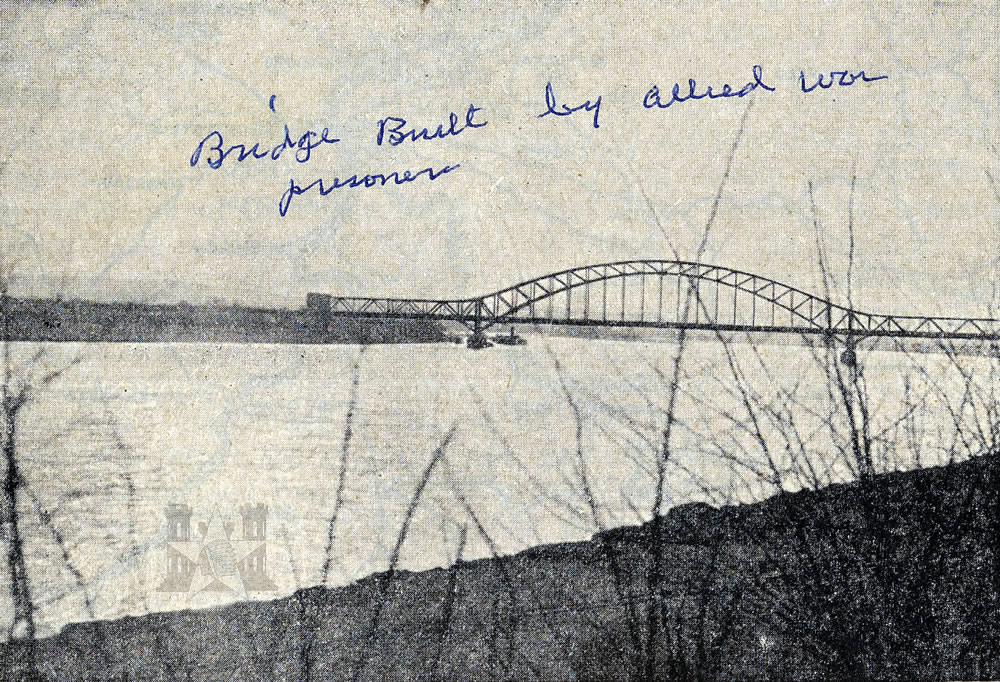 Bridge Built by allied war
prisoners